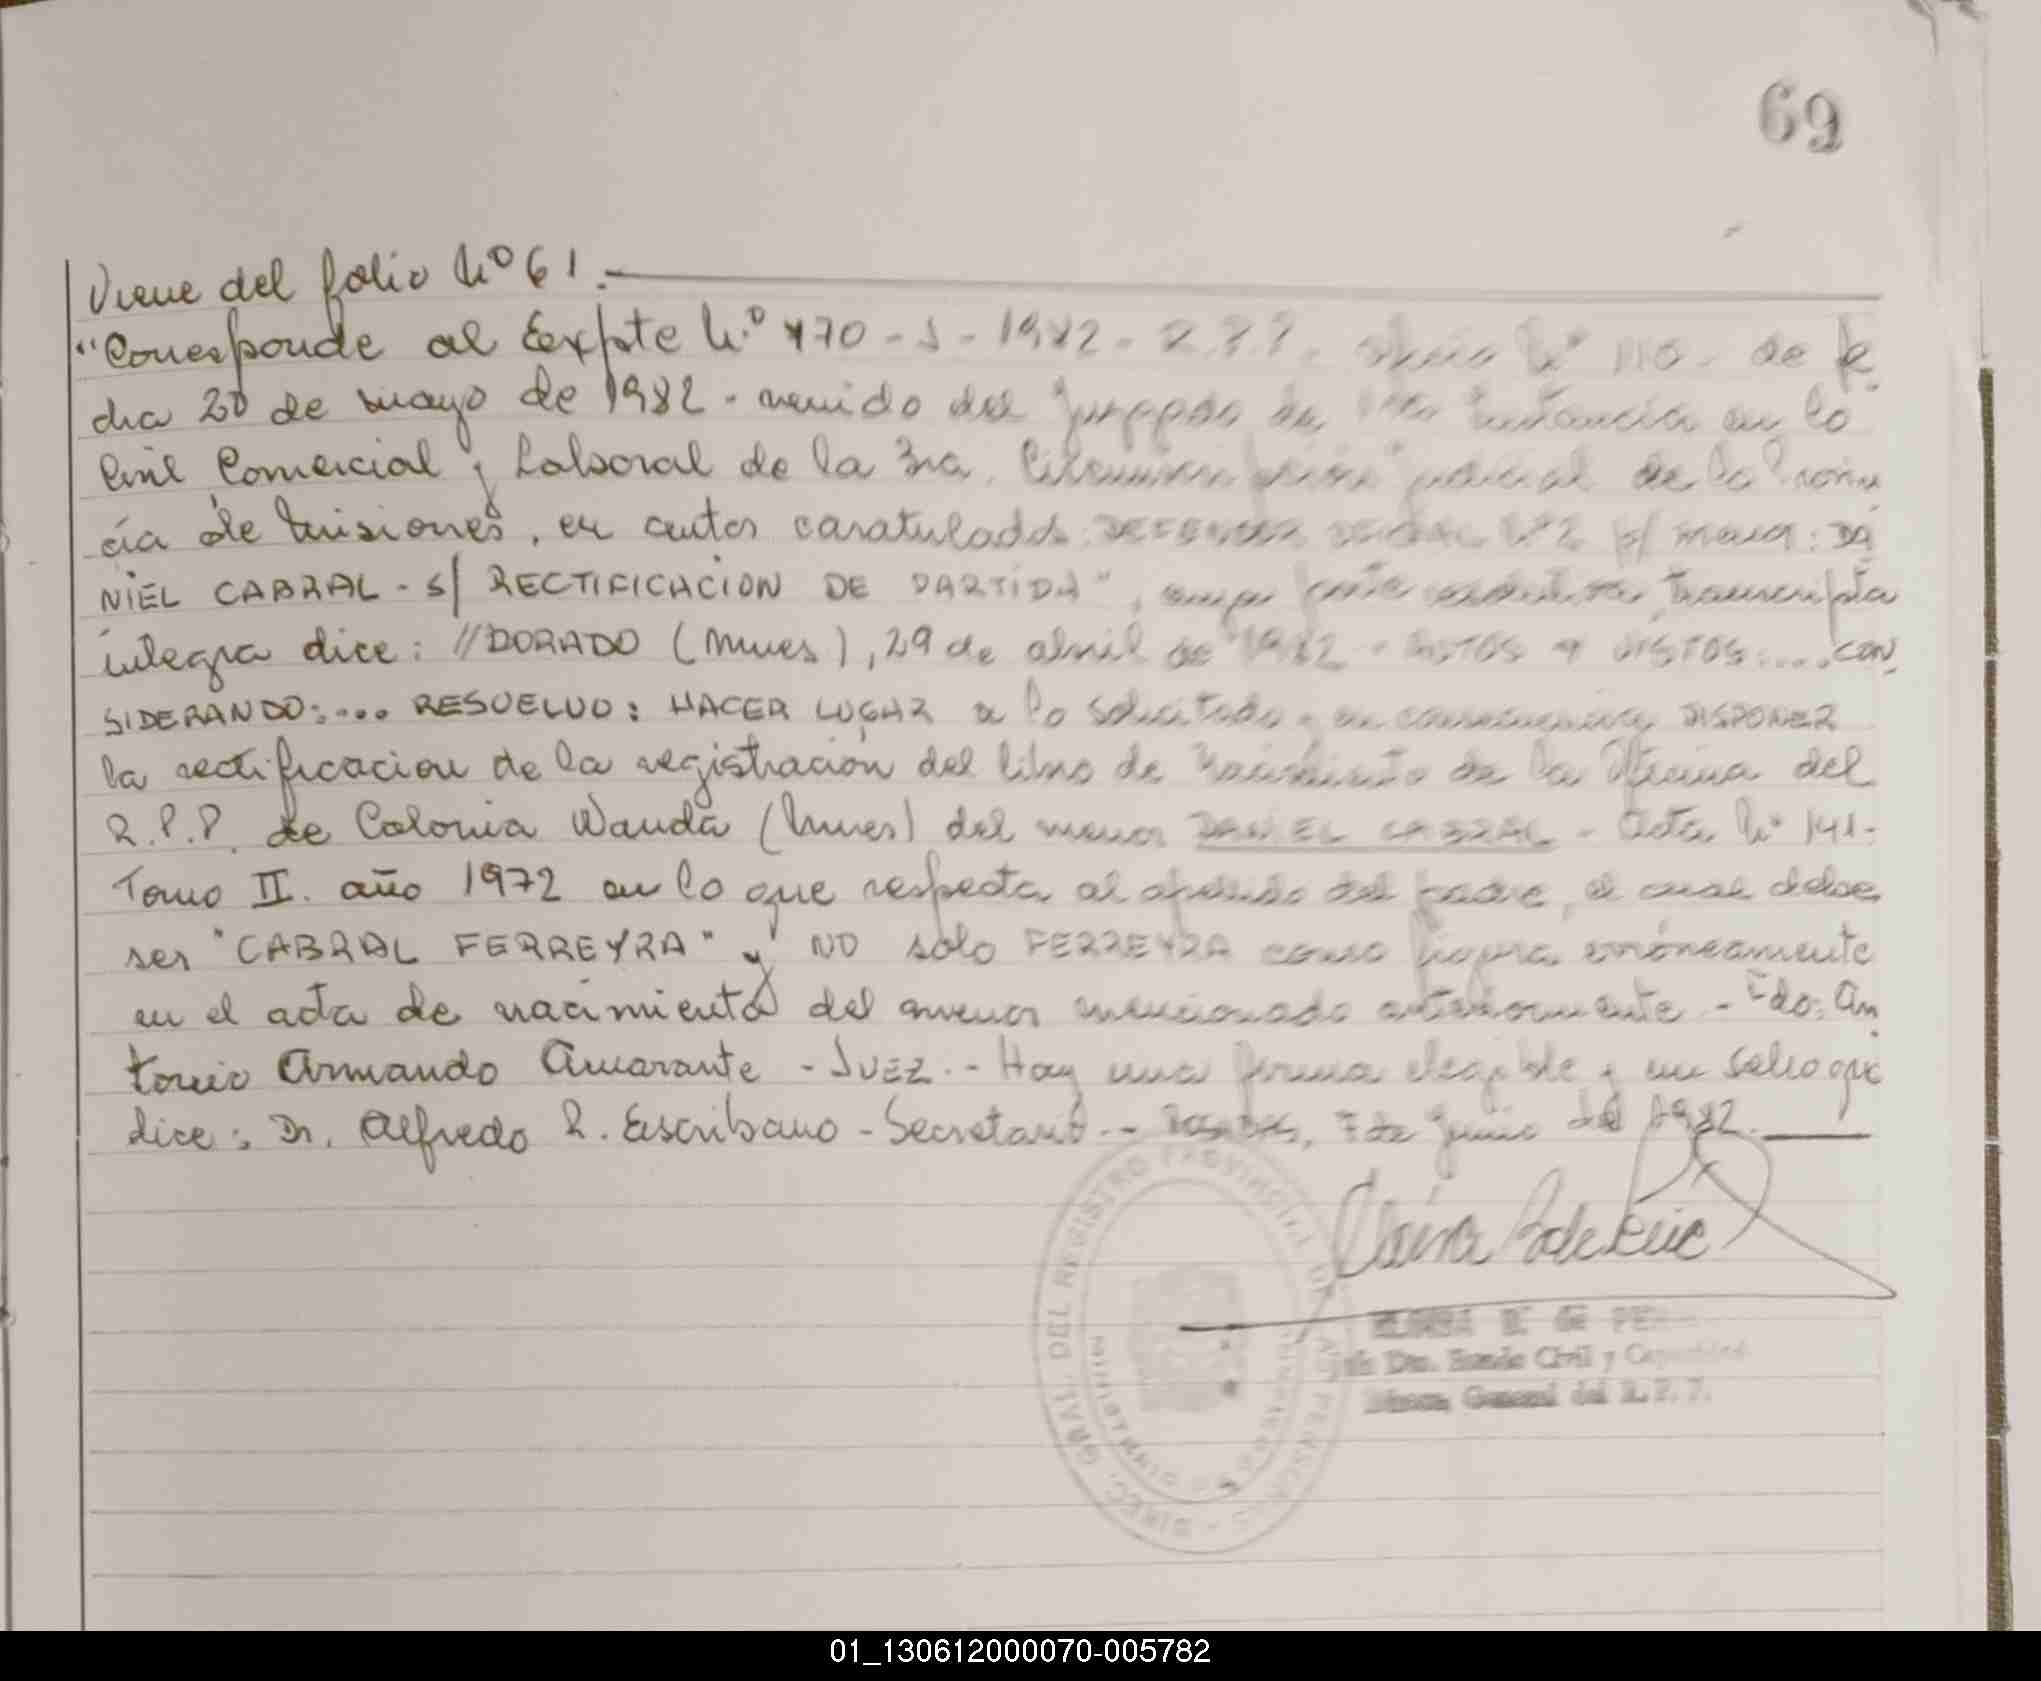 69
Viene del folio Nº 61.-
"Corresponde al Expte Nº 470-J-1982-R.P.P. Oficio Nº 110- de fe
cha 20 de mayo de 1982 - venido del Juzgado de 1ra Instancia en lo
Civil Comercial y Laboral de la 3ra. Circunscripción Judicial de la Provin
cia de Misiones, en autos caratulados: DEFENSOR OFICIAL Nº2 p/ menor: DA
NIEL CABRAL - S/ RECTIFICACION DE PARTIDA", cuya parte resolutiva transcripta
integra dice: //DORADO (Mnes), 29 de abril de 1982 - AUTOS Y VISTOS:.... CON
SIDERANDO:.... RESUELVO: HACER LUGAR a lo solicitado y en consecuencia DISPONER
la rectificacion de la registración del libro de Nacimiento de la Oficina del
R.P.P. de Colonia Wanda (Mnes) del menor DANIEL CABRAL - Acta Nº 141-
Tomo II. año 1972 en lo que respecta al apellido del padre, el cual debe
ser "CABRAL FERREYRA" y NO solo FERREYRA como figura erróneamente
en el acta de nacimiento del menor mencionado anteriormente - Fdo: An
tonio Armando Amarante - JUEZ.- Hay una firma ilegible y un sello que
dice: Dr. Alfredo R. Escribano - Secretario -- Posadas, 7 de Junio de 1982.
DIREC. GRAL. DEL REGISTRO PROVINCIAL DE LAS PERSONAS
MINISTERIO DE GOBIERNO
DE PE
Dto. Estado Civil y Capacidad
General del R.P.P.
01_130612000070-005782